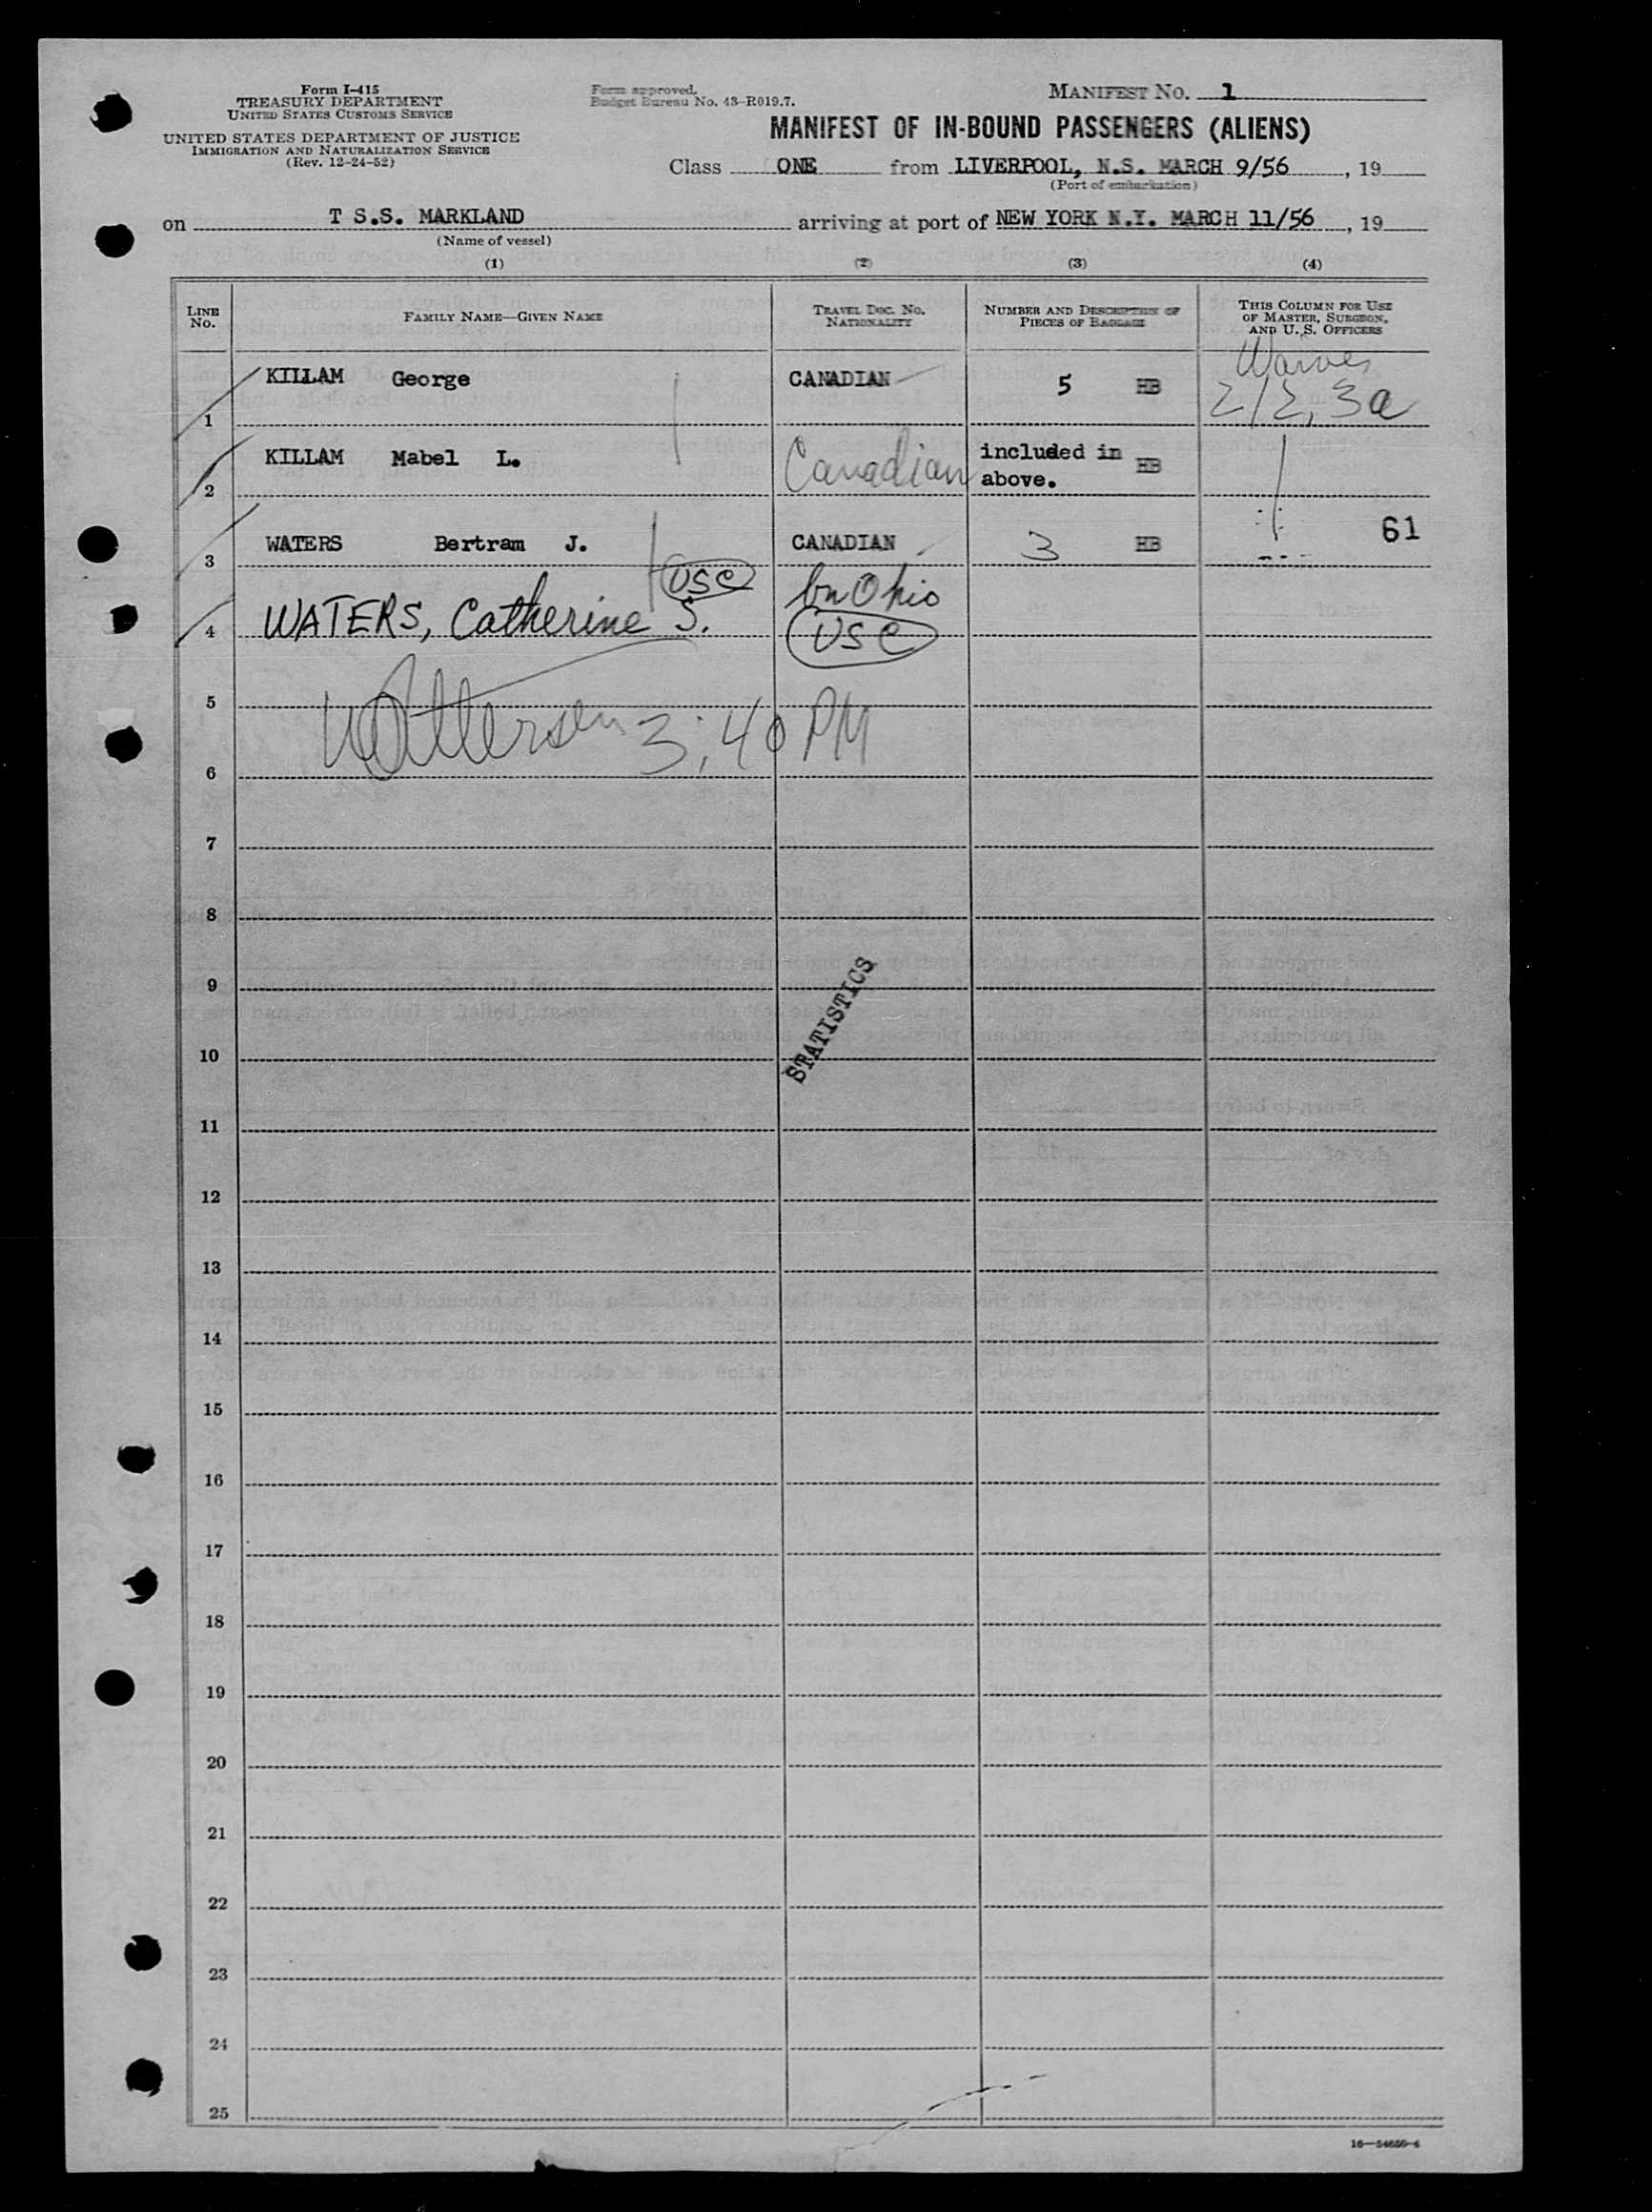 Form I-415
TREASURY DEPARTMENT
UNITED STATES CUSTOMS SERVICE
UNITED STATES DEPARTMENT OF JUSTICE
IMMIGRATION AND NATURALIZATION SERVICE
(Rev. 12-24-52)
Form approved.
Budget Bureau No. 43-R019.7.
MANIFEST No. 1
MANIFEST OF IN-BOUND PASSENGERS (ALIENS)
Class ONE from LIVERPOOL, N.S. MARCH 9/56, 19
(Port of embarkation)
on T S.S. MARKLAND arriving at port of NEW YORK N.Y. MARCH 11/56, 19
(Name of vessel)
(1) (2) (3) (4)
LINE No. FAMILY NAME—GIVEN NAME TRAVEL DOC. No. NATIONALITY NUMBER AND DESCRIPTION OF PIECES OF BAGGAGE THIS COLUMN FOR USE OF MASTER, SURGEON, AND U. S. OFFICERS
1 KILLAM George CANADIAN 5 HB 212, 3a
2 KILLAM Mabel L. Canadian included in above. HB
3 WATERS Bertram J. CANADIAN 3 HB 61
USC
4 WATERS, Catherine S. bn Ohio
USC
5
3:40 PM
6
7
8
9
STATISTICS
10
11
12
13
14
15
16
17
18
19
20
21
22
23
24
25